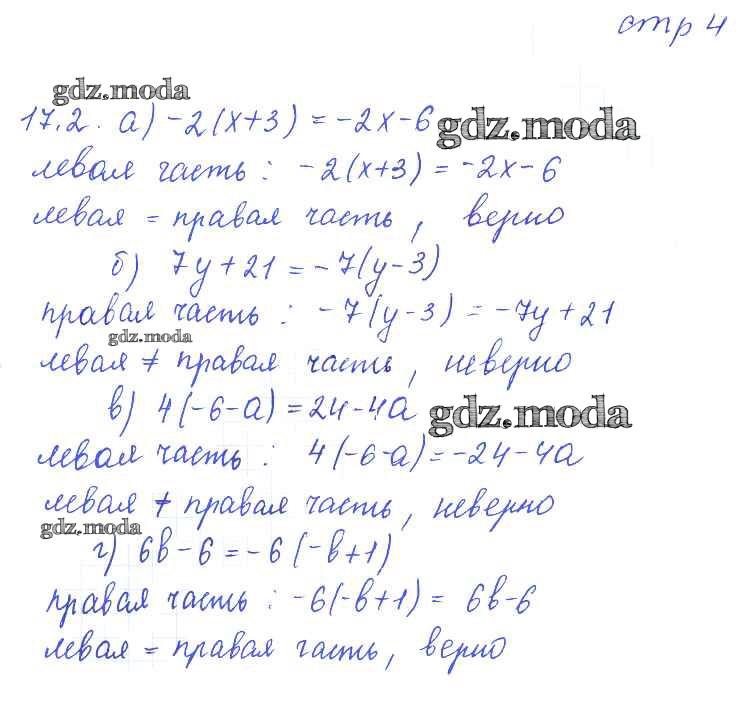 стр 4
gdz.moda
17.2. а) -2(x+3) = -2x-6 gdz.moda
левая часть : -2(x+3) = -2x-6
левая = правая часть, верно
б) 7y+21 = -7(y-3)
правая часть : -7(y-3) = -7y+21
gdz.moda
левая ≠ правая часть, неверно
в) 4(-6-a) = 24-4a gdz.moda
левая часть : 4(-6-a) = -24-4a
левая ≠ правая часть, неверно
gdz.moda
г) 6b-6 = -6(-b+1)
правая часть : -6(-b+1) = 6b-6
левая = правая часть, верно